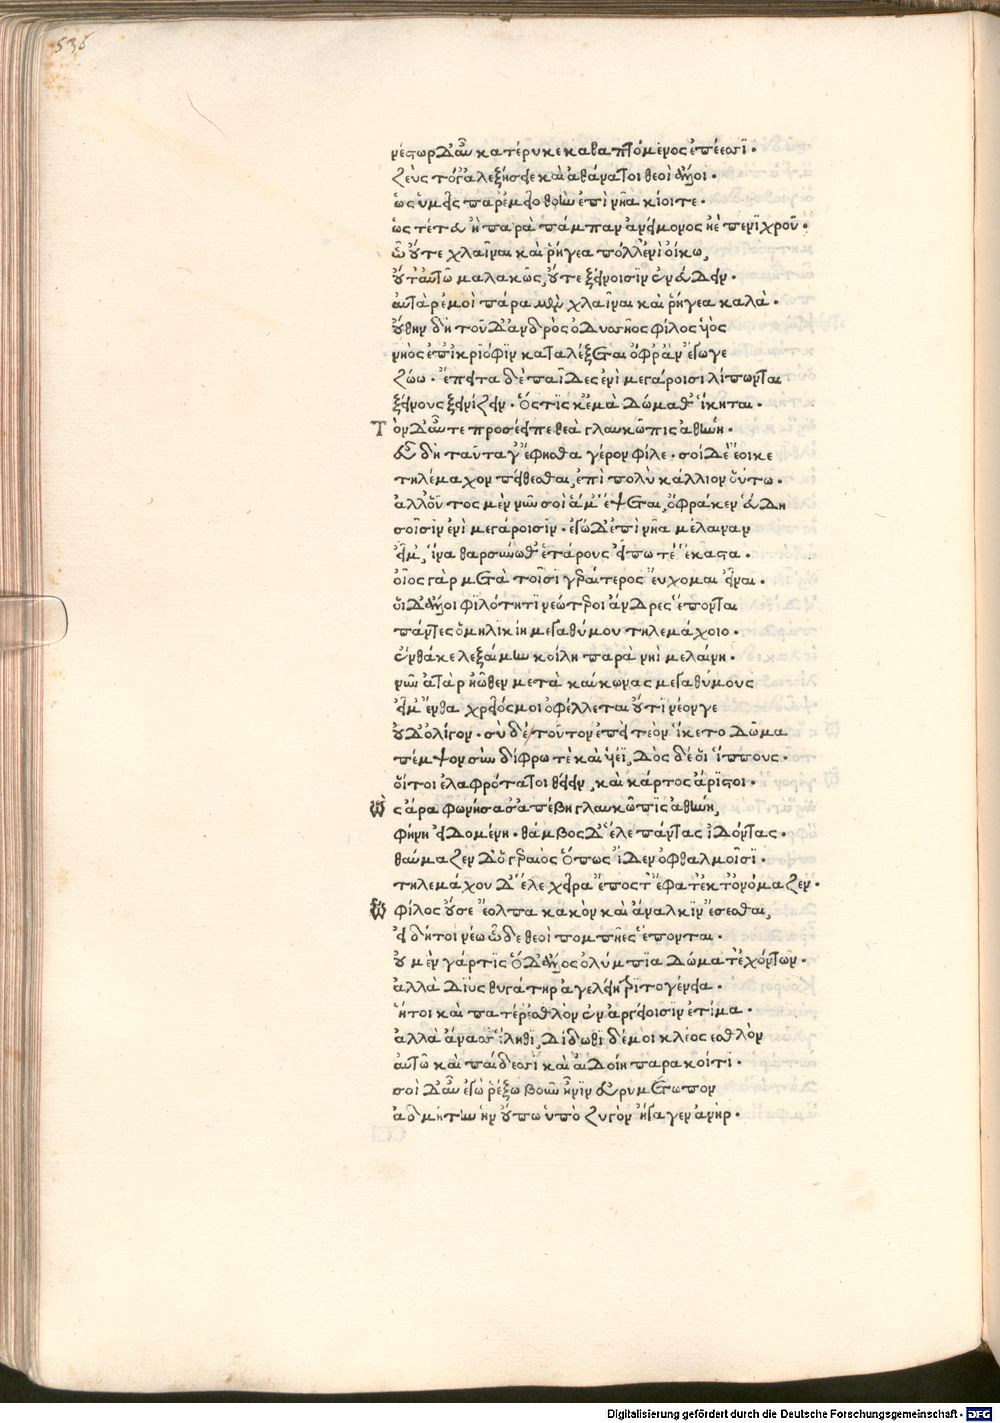 536
νέστωρ δ' αὖ κατέρυκε καθαπτόμενος ἐπέεσσι.
Ζεὺς τόγ' ἀλεξήσειε καὶ ἀθάνατοι θεοὶ ἄλλοι.
ὡς ὑμεῖς παρ' ἐμεῖο θοὴν ἐπὶ νῆα κίοιτε.
ὥς τέ τευ ἢ παρὰ πάμπαν ἀνείμονος ἠὲ πενιχροῦ.
ᾧ οὔτε χλαῖναι καὶ ῥήγεα πόλλ' ἐνὶ οἴκῳ,
οὔτ' αὐτῷ μαλακῶς, οὔτε ξείνοισιν ἐνεύδειν.
αὐτὰρ ἐμοὶ πάρα μὲν χλαῖναι καὶ ῥήγεα καλά.
οὔθην δὴ τοῦδ' ἀνδρὸς ὀδυσσῆος φίλος υἱὸς
νηὸς ἐπ' ἰκριόφιν καταλέξεται ὄφρ' ἂν ἔγωγε
ζώω. ἔπειτα δὲ παῖδες ἐνὶ μεγάροισι λίπωνται
ξείνους ξεινίζειν. ὅστις κ' ἐμὰ δώμαθ' ἵκηται.
Τὸν δ' αὖτε προσέειπε θεὰ γλαυκῶπις ἀθήνη.
εὖ δὴ ταῦτά γ' ἔφησθα γέρον φίλε. σοὶ δὲ ἔοικε
τηλέμαχον πείθεσθαι, ἐπὶ πολὺ κάλλιον οὕτω.
ἀλλ' οὗτος μὲν νῦν σοὶ ἅμ' ἕψεται, ὄφρα κεν εὕδῃ
σοῖσιν ἐνὶ μεγάροισιν. ἐγὼ δ' ἐπὶ νῆα μέλαιναν
εἶμ', ἵνα θαρσύνωθ' ἑτάρους εἴπω τὲ ἕκαστα.
οἶος γὰρ μετὰ τοῖσι γεραίτερος εὔχομαι εἶναι.
οἱ δ' ἄλλοι φιλότητι νεώτεροι ἄνδρες ἕπονται
πάντες ὁμηλικίη μεγαθύμου τηλεμάχοιο.
ἔνθά κε λεξαίμην κοίλη παρὰ νηὶ μελαίνη.
νῦν ἀτὰρ ἠῶθεν μετὰ καύκωνας μεγαθύμους
εἶμ' ἔνθα χρεῖός μοι ὀφέλλεται οὔτι νέον γε
οὐδ' ὀλίγον. σὺ δὲ τοῦτον ἐπεὶ τεὸν ἵκετο δῶμα
πέμψον σὺν δίφρω τὲ καὶ υἱέϊ, δὸς δέ οἱ ἵππους.
οἵ τοι ἐλαφρότατοι θείειν, καὶ κάρτος ἄριστοι.
Ὣς ἄρα φωνήσασ' ἀπέβη γλαυκῶπις ἀθήνη,
φήνη εἰδομένη. θάμβος δ' ἕλε πάντας ἰδόντας.
θαύμαζεν δ' ὁ γεραιὸς ὅπως ἴδεν ὀφθαλμοῖσι.
τηλεμάχου δ' ἕλε χεῖρα ἔπος τ' ἔφατ' ἐκ τ' ὀνόμαζεν.
Ὦ φίλος οὔ σε ἔολπα κακὸν καὶ ἄναλκιν ἔσεσθαι,
εἰ δή τοι νέω ὧδε θεοὶ πομπῆες ἕπονται.
οὐ μὲν γάρ τις ὅδ' ἄλλος ὀλύμπια δώματ' ἐχόντων.
ἀλλὰ διὸς θυγάτηρ ἀγελείη τριτογένεια.
ἥ τοι καὶ πατέρ' ἐσθλὸν ἐν ἀργείοισιν ἐτίμα.
ἀλλὰ ἄνασσ' ἵληθι, δίδωθι δέ μοι κλέος ἐσθλὸν
αὐτῶ καὶ παίδεσσι καὶ αἰδοίη παρακοίτι.
σοὶ δ' αὖ ἐγὼ ῥέξω βοῦν ἦνιν εὐρυμέτωπον
ἀδμήτην ἣν οὔπω ὑπὸ ζυγὸν ἤγαγεν ἀνήρ.
Digitalisierung gefördert durch die Deutsche Forschungsgemeinschaft - DFG